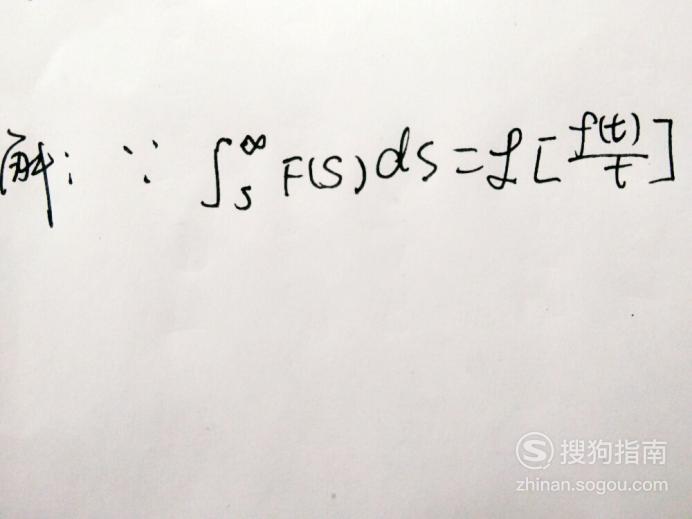 解: ∵ ∫_s^∞ F(S)ds=ℒ[f(t)/t]
搜狗指南
zhinan.sogou.com